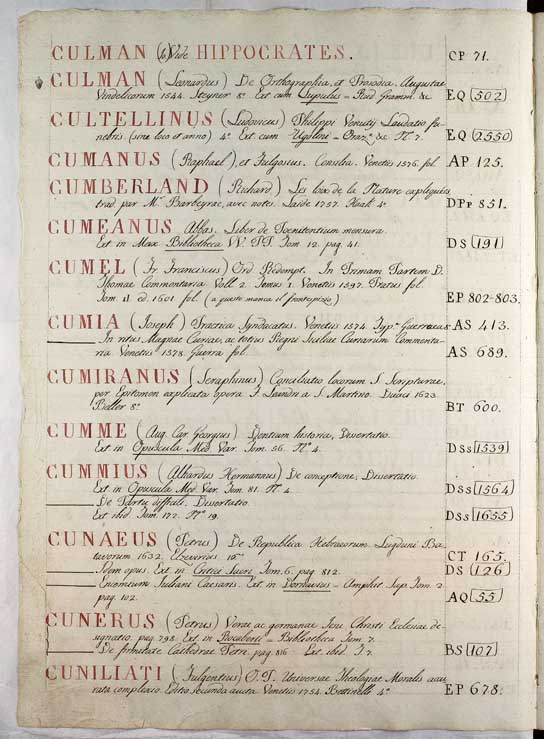 CULMAN (Io) Vide HIPPOCRATES. CP 71.
CULMAN (Leonardus) De Orthographia, et Prosodia. Augustae
Vindelicorum 1544. Steyner 8° Ext cum Lupulus - Rud Gramm. &c EQ 502
CULTELLINUS (Ludovicus) Philippi Venutij Laudatio fu-
nebris. (sine loco et anno) 4° Ext. cum Ugolini - Oraz.e &c N° 7. EQ 2550
CUMANUS (Raphael), et Fulgosius. Consilia. Venetiis 1576. fol. AP 125.
CUMBERLAND (Richard) Les loix de la Nature expliquées
trad. par Mr. Barbeyrac, avec notes. Leide 1757. Haak 4° DPP 851.
CUMEANUS Abbas. Liber de Poenitentium mensura.
Ext in Max Bibliotheca VV. PP. Tom 12. pag. 41. DS 191
CUMEL (Fr. Franciscus) Ord Redempt. In Primam Partem D.
Thomae Commentaria Voll 2. Tomus I. Venetiis 1597. Pretus fol.
Tom II ed. 1601 fol. (a questo manca il frontispizio) EP 802-803.
CUMIA (Joseph) Practica Syndacatus. Venetiis 1574. Guerraea 8° AS 413.
_____ In ritus Magnae Curiae, ac totius Regni Siciliae Curiarum Commenta-
ria Venetiis 1578. Guerra fol. AS 689.
CUMIRANUS (Seraphinus) Conciliatio locorum S. Scripturae,
per Epitomen explicata opera a S. Martino. Duaci 1623.
Beller 8° BT 600.
CUMME (Aug. Car. Georgius) Dentium historia, Dissertatio.
Ext in Opuscula Med. Var. Tom. 56. N° 4. DSs 1539
CUMMIUS (Alhardus Hermannus) De conceptione, Dissertatio.
Ext. in Opuscula Med. Var. Tom. 81. N° 4. DSs 1564
_____ De Partu difficili. Dissertatio
Ext ibid. Tom. 172. N° 19. DSs 1655
CUNAEUS (Petrus) De Republica Hebraeorum Lugduni Ba-
tavorum 1632. Elzevirius 16° CT 165.
_____ Idem opus. Ext in Critici Sacri Tom. 6. pag 812. DS 126
_____ Encomium Iuliani Caesaris. Ext in Dornavius - Amphit Sap Tom. 2.
pag. 102. AQ 55
CUNERUS (Petrus) Verae ac germanae Iesu Christi Ecclesiae de-
signatio. pag 798. Ext in Rocaberti - Bibliotheca Tom 7.
_____ De firmitate Cathedrae Petri. pag 816 - Ext ibid T. 7. BS 107
CUNILIATI (Fulgentius) O. P. Universae Theologiae Moralis accu-
rata complexio. Editio secunda aucta Venetiis 1754. Bettinelli 4° EP 678.